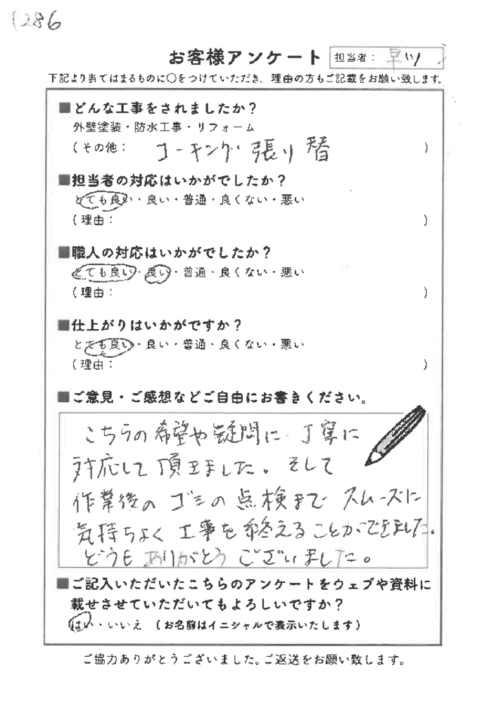 1286
お客様アンケート
担当者：早川
下記より当てはまるものに○をつけていただき、理由の方もご記載をお願い致します。
■どんな工事をされましたか？
外壁塗装・防水工事・リフォーム
（その他： コーキング 張り替 ）
■担当者の対応はいかがでしたか？
とても良い・良い・普通・良くない・悪い
（理由： ）
■職人の対応はいかがでしたか？
とても良い・良い・普通・良くない・悪い
（理由： ）
■仕上がりはいかがですか？
とても良い・良い・普通・良くない・悪い
（理由： ）
■ご意見・ご感想などご自由にお書きください。
こちらの希望や疑問に 丁寧に
対応して頂きました。そして
作業後のゴミの点検まで スムーズに
気持ちよく 工事を終えることができました。
どうも ありがとう ございました。
■ご記入いただいたこちらのアンケートをウェブや資料に
載せさせていただいてもよろしいですか？
はい・いいえ （お名前はイニシャルで表示いたします）
ご協力ありがとうございました。ご返送をお願い致します。